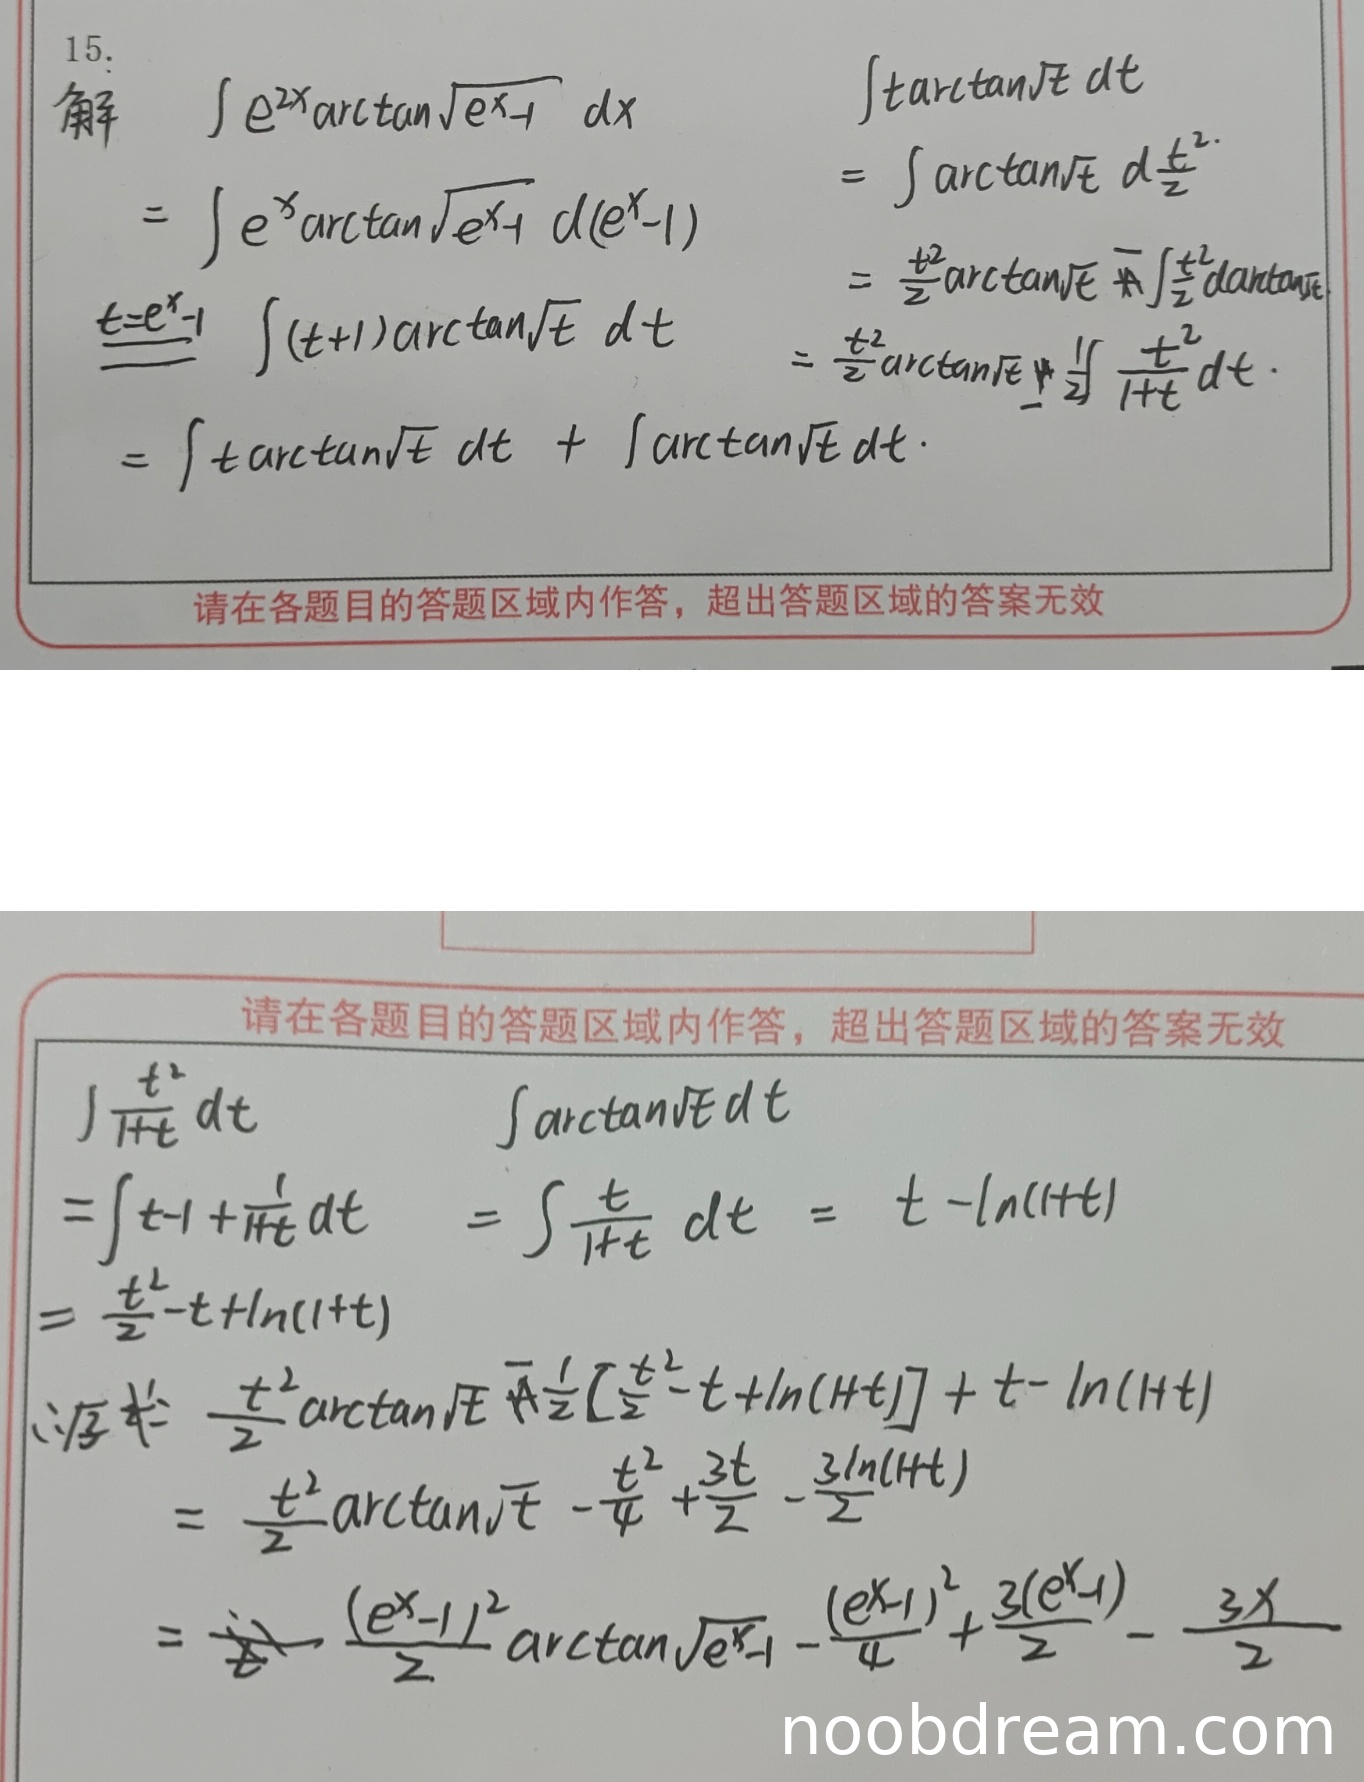 15.
解 ∫ e^{2x} arctan√(e^x-1) dx
= ∫ e^x arctan√(e^x-1) d(e^x-1)
t=e^x-1 ∫ (t+1) arctan√t dt
= ∫ t arctan√t dt + ∫ arctan√t dt.
∫ t arctan√t dt
= ∫ arctan√t d t²/2.
= t²/2 arctan√t - ∫ t²/2 d arctan√t
= t²/2 arctan√t - 1/2 ∫ t²/(1+t) dt.
请在各题目的答题区域内作答，超出答题区域的答案无效
请在各题目的答题区域内作答，超出答题区域的答案无效
∫ t²/(1+t) dt
= ∫ t-1+1/(1+t) dt
= t²/2 - t + ln(1+t)
∫ arctan√t dt
= ∫ t/(1+t) dt = t - ln(1+t)
t²/2 arctan√t - 1/2 [t²/2 - t + ln(1+t)] + t - ln(1+t)
= t²/2 arctan√t - t²/4 + 3t/2 - 3ln(1+t)/2
= (e^x-1)²/2 arctan√(e^x-1) - (e^x-1)²/4 + 3(e^x-1)/2 - 3x/2
noobdream.com